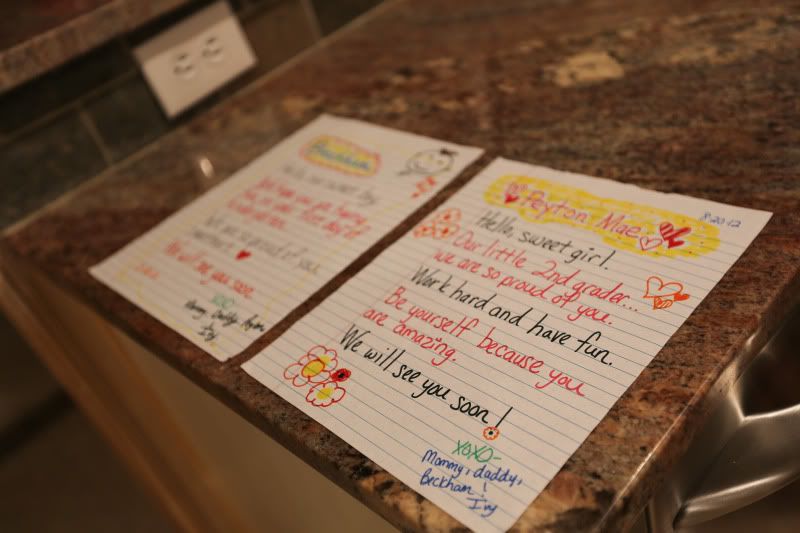 Beckham
sweet boy.
We are so proud of you
We will see you soon.
Mommy, Daddy, Peyton
Ivy
Peyton Mae
8.20.12
Hello, sweet girl.
Our little 2nd grader...
we are so proud of you.
Work hard and have fun.
Be yourself because you
are amazing.
We will see you soon!
XOXO-
Mommy, daddy,
Beckham &
Ivy